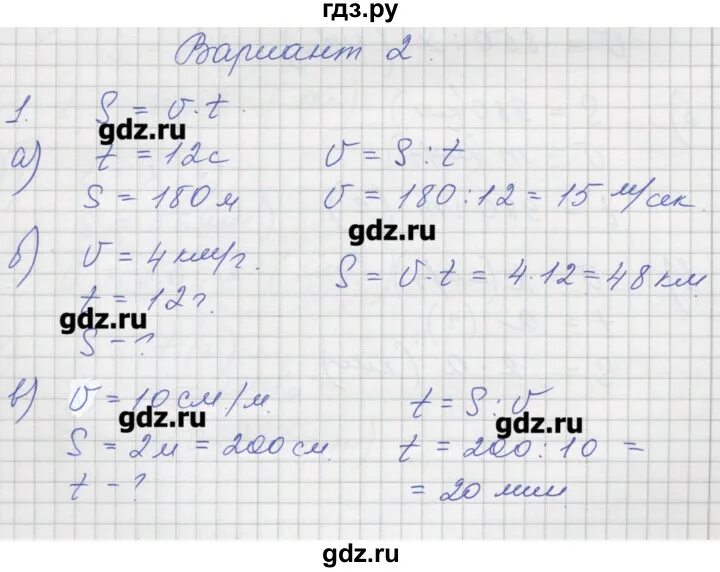 гдз.ру
Вариант 2.
1. S = v·t
gdz.ru
а) t = 12с v = S : t
S = 180 м v = 180 : 12 = 15 м/сек.
gdz.ru
б) v = 4 км/г. S = v·t = 4·12 = 48 км.
t = 12 г.
gdz.ru
S - ?
в) v = 10 см/м. t = S : v
gdz.ru gdz.ru
S = 2м = 200 см. t = 200 : 10 =
t - ? = 20 мин.
gdz.ru